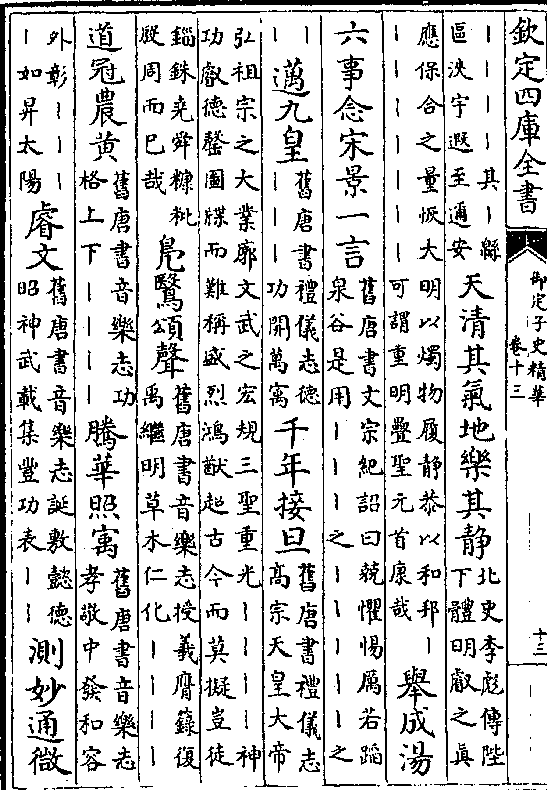 欽定四庫全書
御定子史精華
卷十三
十三
｜｜｜｜其｜縣
區浹宇遐至邇安
天清其氣地樂其静
北史李彪傳陛
下體明叡之真
應保合之量恢大明以燭物履静恭以和邦｜
｜｜｜｜｜｜｜可謂重明疊聖元首康哉
舉成湯
六事念宋景一言
舊唐書文宗紀詔曰兢懼惕厲若蹈
泉谷是用｜｜｜｜之｜｜｜｜之
｜
｜
邁九皇
舊唐書禮儀志德
｜｜｜功開萬寓
千年接旦
舊唐書禮儀志
高宗天皇大帝
弘祖宗之大業廓文武之宏規三聖重光｜｜｜｜神
功叡德罄圖牒而難稱盛烈鴻猷超古今而莫擬豈徒
錙銖堯舜糠粃
殷周而巳哉
鳧鷖頌聲
舊唐書音樂志授羲膺籙復
禹繼明草木仁化｜｜｜｜
道冠農黄
舊唐書音樂志功
格上下｜｜｜｜
騰華照寓
舊唐書音樂志
孝敬中發和容
外彰｜｜｜｜
｜如昇太陽
睿文
舊唐書音樂志誕敷懿德
昭神武載集豐功表｜｜
測妙通微